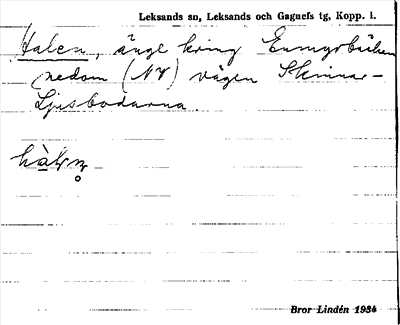 Leksands sn, Leksands och Gagnefs tg, Kopp. l.
Halen, änge kring Enmyrbäcken
nedom (NV) vägen Skinnar-
Ljusbodarna.
Bror Lindén 1934